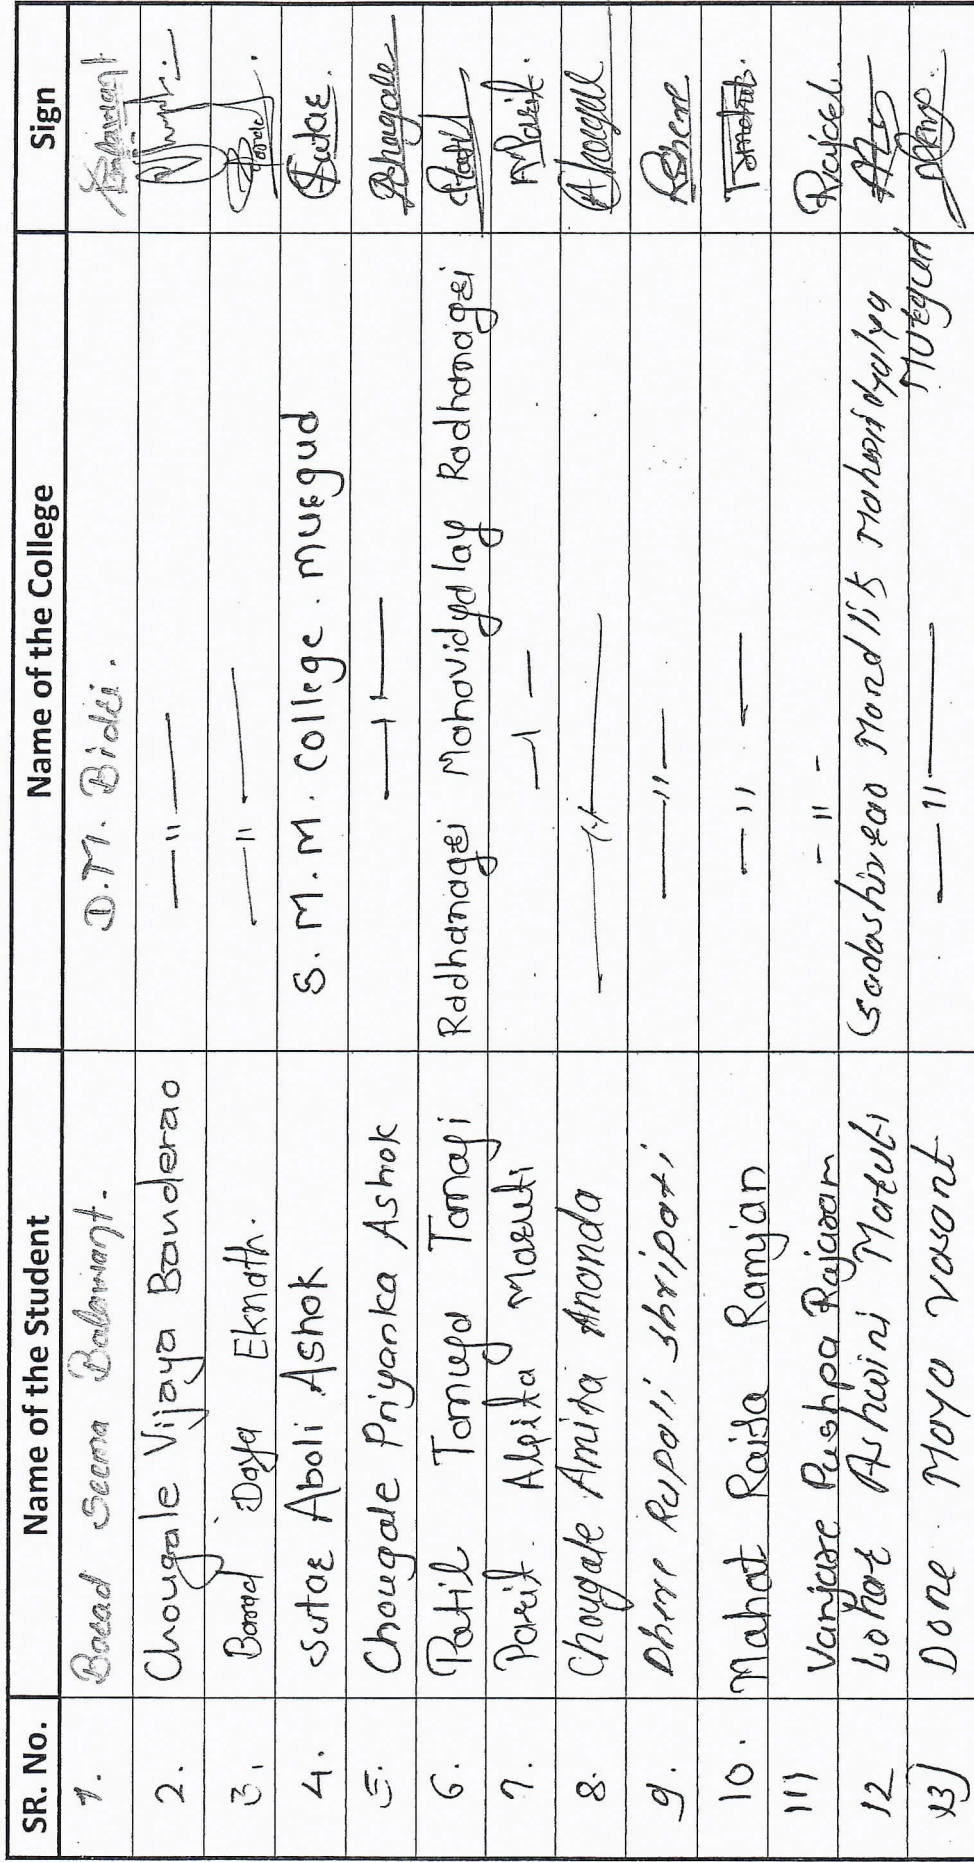 SR. No. Name of the Student Name of the College Sign
1. Borad Seema Balawant. D.M. Bidri. Balawant
2. Chougale Vijaya Banderao —"—
3. Borad Daya Eknath. —"— Borade.
4. Sutar Aboli Ashok S. M. M. College. Murgud Sutar.
5. Chougale Priyanka Ashok —"— Ashugale
6. Patil Tanuja Tanaji Radhanagri Mahavidyalay Radhanagri Patil
7. Parit. Alpita Maruti —"— Parit.
8. Chougale Amita Ananda —"— Chougul
9. Dhere Rupali Shripati —"— Rdhere
10. Mahat Raisa Ramjan —"—
11) Vanjare Pushpa Rajaram - " -
12 Lohar Ashwini Maruti Sadashivrao Mandlik Mahavidyalya
Murgud
13) Done. Maya Vasant —"—